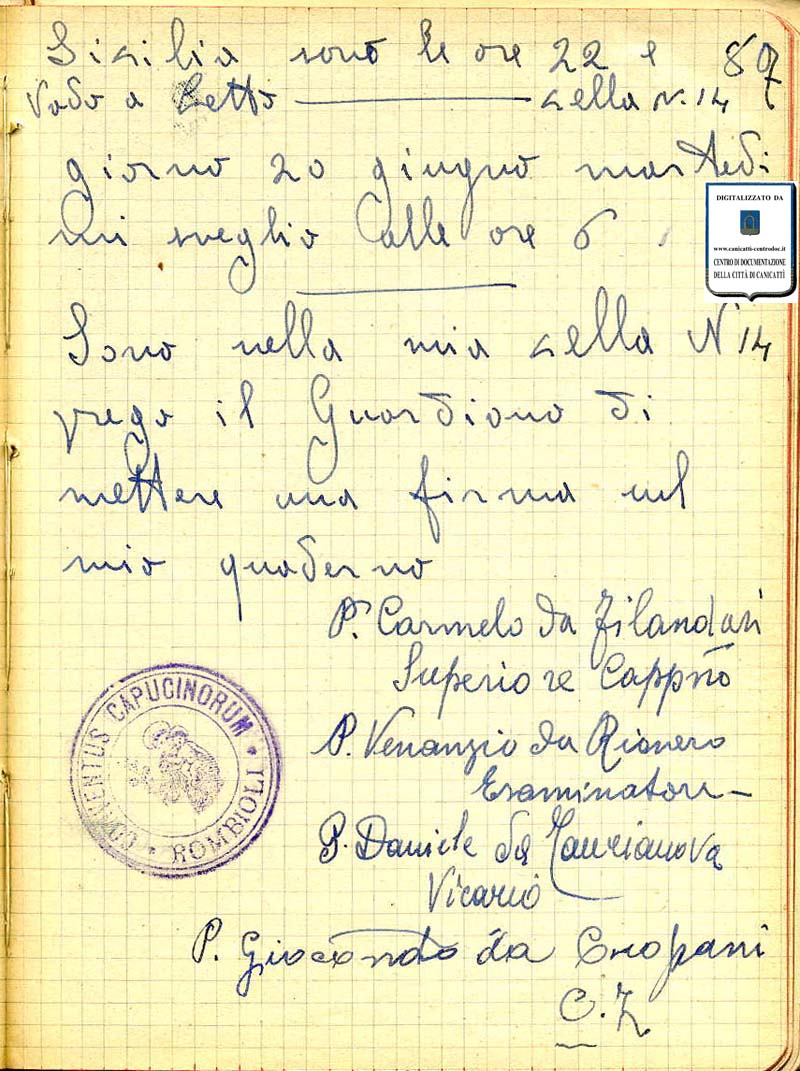 Sicilia sono le ore 22 e 87
vado a letto — cella N. 14
giorno 20 giugno martedi
mi sveglio alle ore 6
Sono nella mia cella N 14
prego il Guardiano di
mettere una firma nel
mio quaderno
P. Carmelo da Filandari
Superiore Cappño
P. Venanzio da Rionero
Esaminatore
P. Daniele da Taurianova
Vicario
P. Giocondo da Cropani
C. Z.
CONVENTUS CAPUCINORUM • ROMBIOLI •
DIGITALIZZATO DA
www.canicatti-centrodoc.it
CENTRO DI DOCUMENTAZIONE
DELLA CITTÀ DI CANICATTÌ